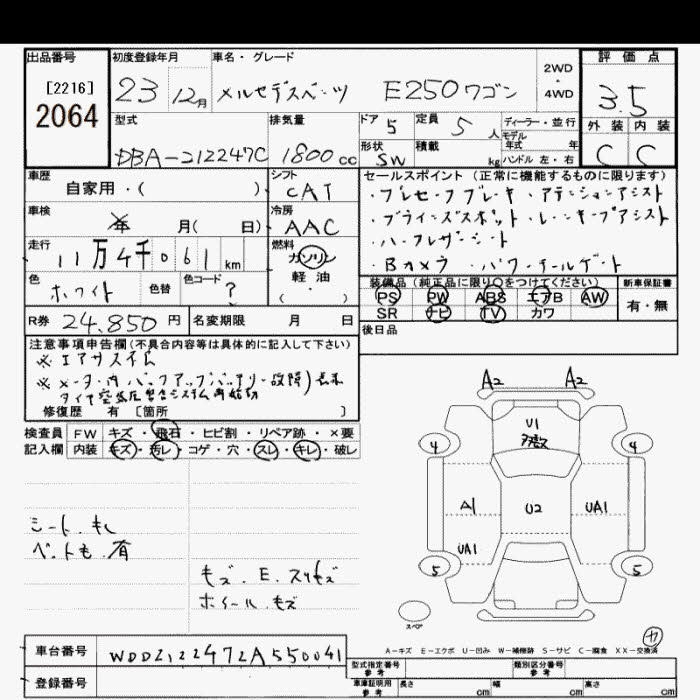 出品番号 初度登録年月 車名・グレード 2WD・4WD 評価点
[2216]
2064
23 12月 メルセデスベンツ E250ワゴン 3.5
型式 排気量 ドア 5 定員 5人 ディーラー・並行 外装 内装
モデル年式 年
DBA-212247C 1800cc 形状 SW 積載 kg ハンドル 左・右 C C
車歴 シフト セールスポイント (正常に機能するものに限ります)
自家用・( ) CAT ・プレセーフブレーキ ・アテンションアシスト
車検 冷房 ・ブラインドスポット ・レーンキープアシスト
年 月( 日) AAC ・ハーフレザーシート
走行 燃料 ・Bカメラ ・パワーテールゲート
11万4千061km ガソリン
軽油
( )
色 色替 色コード 装備品 (純正品に限り○をつけてください) 新車保証書
ホワイト ? PS PW ABS エアB AW 有・無
SR ナビ TV カワ
R券 24,850円 名変期限 月 日 後日品
注意事項申告欄(不具合内容等は具体的に記入して下さい)
※エアサスイム
※メーター内バックアップバッテリー故障 表示
タイヤ空気圧警告システム再始動
修復歴 有 [箇所 ]
検査員 FW キズ・飛石・ヒビ割・リペア跡・×要
記入欄 内装 キズ・汚レ・コゲ・穴・スレ・キレ・破レ
A2 A2
U1
多数
4 4
A1 U2 UA1
UA1
5 5
シート.キレ
ペット毛.有
キズ.E.スリキズ
ホイール.キズ
スペア
A-キズ E-エクボ U-凹み W-補修跡 S-サビ C-腐食 XX-交換済
車台番号 WDD2122472A550041
登録番号
型式指定番号 参考 類別区分番号 参考
車庫証明用 参考 長さ cm 幅 cm 高さ cm